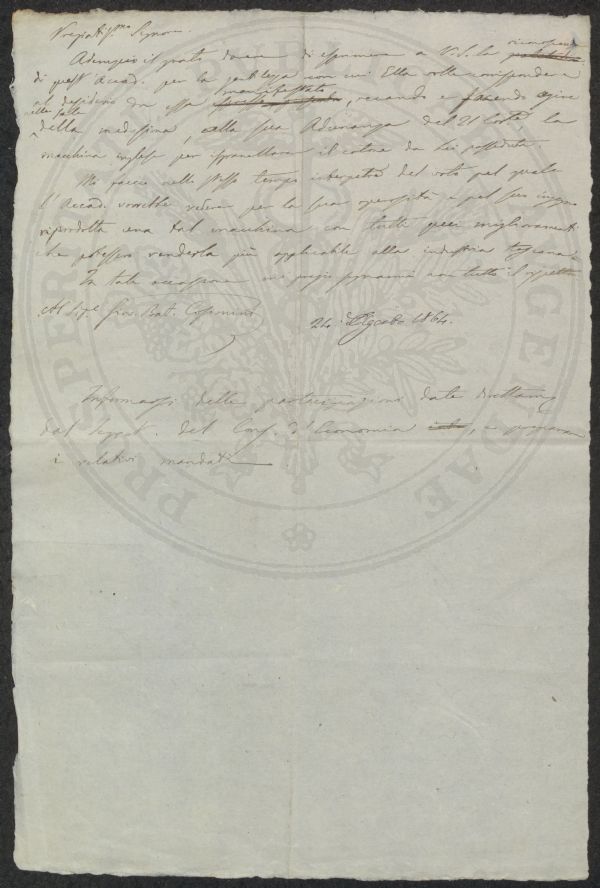 Pregiatis.mo Signore.
Adempio il grato dovere di esprimere a V.S. la riconoscenza
di quest'Accad. per la gentilezza con cui Ella volle corrispondere
al desiderio da essa manifestato, recando e facendo agire
nelle Sale
della medesima, alla sua Adunanza del 21 corr.te, la
macchina inglese per sgranellare il cotone da Lei posseduta.
Mi faccio nello stesso tempo interpetre del voto pel quale
l'Accad. vorrebbe vedere per la sua operosità e pel suo ingegno
riprodotta una tal macchina con tutti quei miglioramenti
che potessero renderla più applicabile alla industria toscana.
In tale occasione mi pregio segnarmi con tutto il rispetto
Al Sig.e Gio. Bat.
24 Agosto 1864.
Informarsi delle partecipazioni date direttam.
dal Segret. del d'Economia, e preparare
i relativi mandati
PROSPERITATI PUBLICAE AUGENDAE